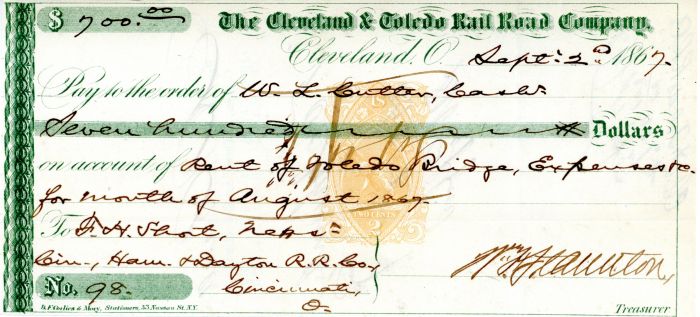 $ 700.00 The Cleveland & Toledo Rail Road Company.
Cleveland, O. Sept. 2d 1867.
Pay to the order of W. L. Cutter, Cashr.
Seven hundred Dollars
on account of Rent of Toledo Bridge, Expenses &c.
for month of August 1867.
To F. H. Short,
Cin., Ham. & Dayton R. R. Co.,
No. 98. Cincinnati,
O.
TWO CENTS
2
Staunton,
Treasurer
Stationers, 55 Nassau St. N.Y.